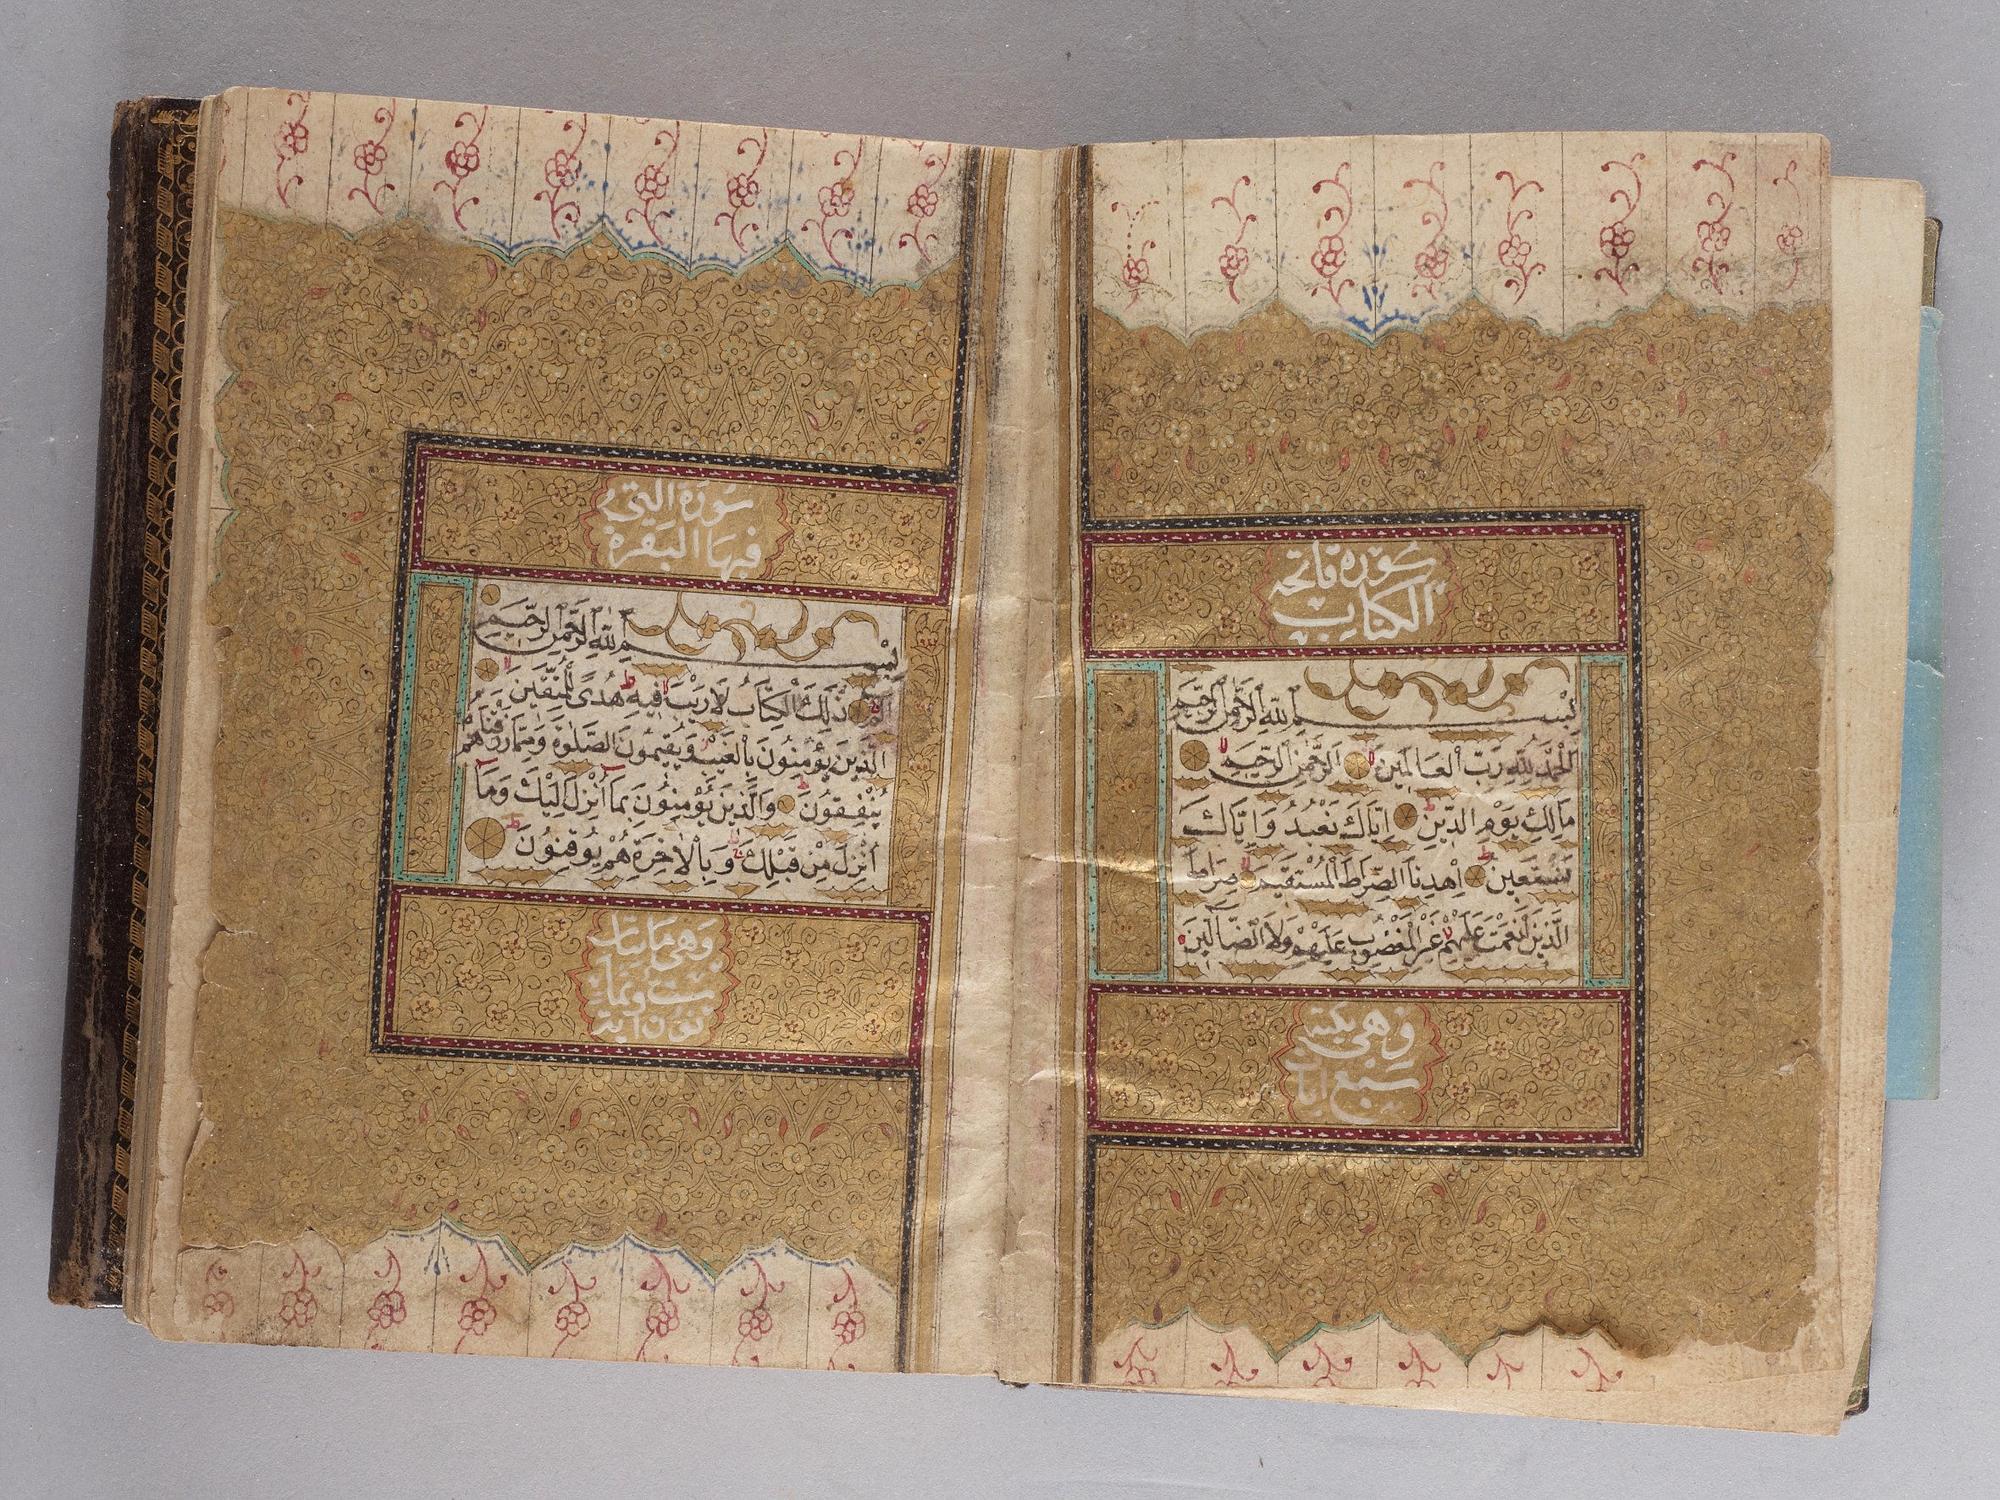 سورة فاتحة
الكتاب
بِسْمِ اللهِ الرَّحْمٰنِ الرَّحِيمِ
اَلْحَمْدُ لِلّٰهِ رَبِّ الْعَالَمِينَ الرَّحْمٰنِ الرَّحِيمِ
مَالِكِ يَوْمِ الدِّينِ اِيَّاكَ نَعْبُدُ وَاِيَّاكَ
نَسْتَعِينُ اِهْدِنَا الصِّرَاطَ الْمُسْتَقِيمَ صِرَاطَ
الَّذِينَ اَنْعَمْتَ عَلَيْهِمْ غَيْرِ الْمَغْضُوبِ عَلَيْهِمْ وَلَا الضَّالِّينَ
وهي مكية
سبع ايات
سورة التي
فيها البقرة
بِسْمِ اللهِ الرَّحْمٰنِ الرَّحِيمِ
الم ذٰلِكَ الْكِتَابُ لَا رَيْبَ فِيهِ هُدًى لِلْمُتَّقِينَ
الَّذِينَ يُؤْمِنُونَ بِالْغَيْبِ وَيُقِيمُونَ الصَّلٰوةَ وَمِمَّا رَزَقْنَاهُمْ
يُنْفِقُونَ وَالَّذِينَ يُؤْمِنُونَ بِمَا اُنْزِلَ اِلَيْكَ وَمَا
اُنْزِلَ مِنْ قَبْلِكَ وَبِالْاٰخِرَةِ هُمْ يُوقِنُونَ
وهي مايتان
ست وثما
نون اية